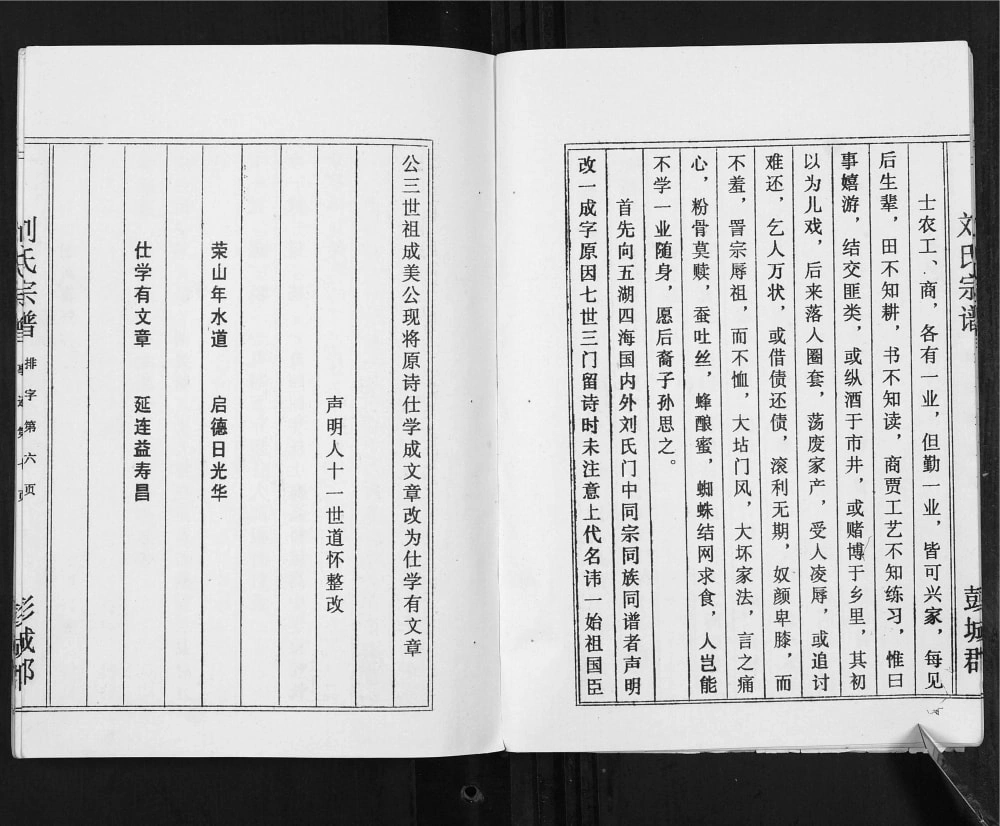 刘氏宗谱
彭城郡
士农工、商，各有一业，但勤一业，皆可兴家，每见
后生辈，田不知耕，书不知读，商贾工艺不知练习，惟曰
事嬉游，结交匪类，或纵酒于市井，或赌博于乡里，其初
以为儿戏，后来落人圈套，荡废家产，受人凌辱，或追讨
难还，乞人万状，或借债还债，滚利无期，奴颜卑膝，而
不羞，詈宗辱祖，而不恤，大坫门风，大坏家法，言之痛
心，粉骨莫赎，蚕吐丝，蜂酿蜜，蜘蛛结网求食，人岂能
不学一业随身，愿后裔子孙思之。
首先向五湖四海国内外刘氏门中同宗同族同谱者声明
改一成字原因七世三门留诗时未注意上代名讳一始祖国臣
公三世祖成美公现将原诗仕学成文章改为仕学有文章
声明人十一世道怀整改
荣山年水道　启德日光华
仕学有文章　延连益寿昌
刘氏宗谱
排字第六页
彭城郡